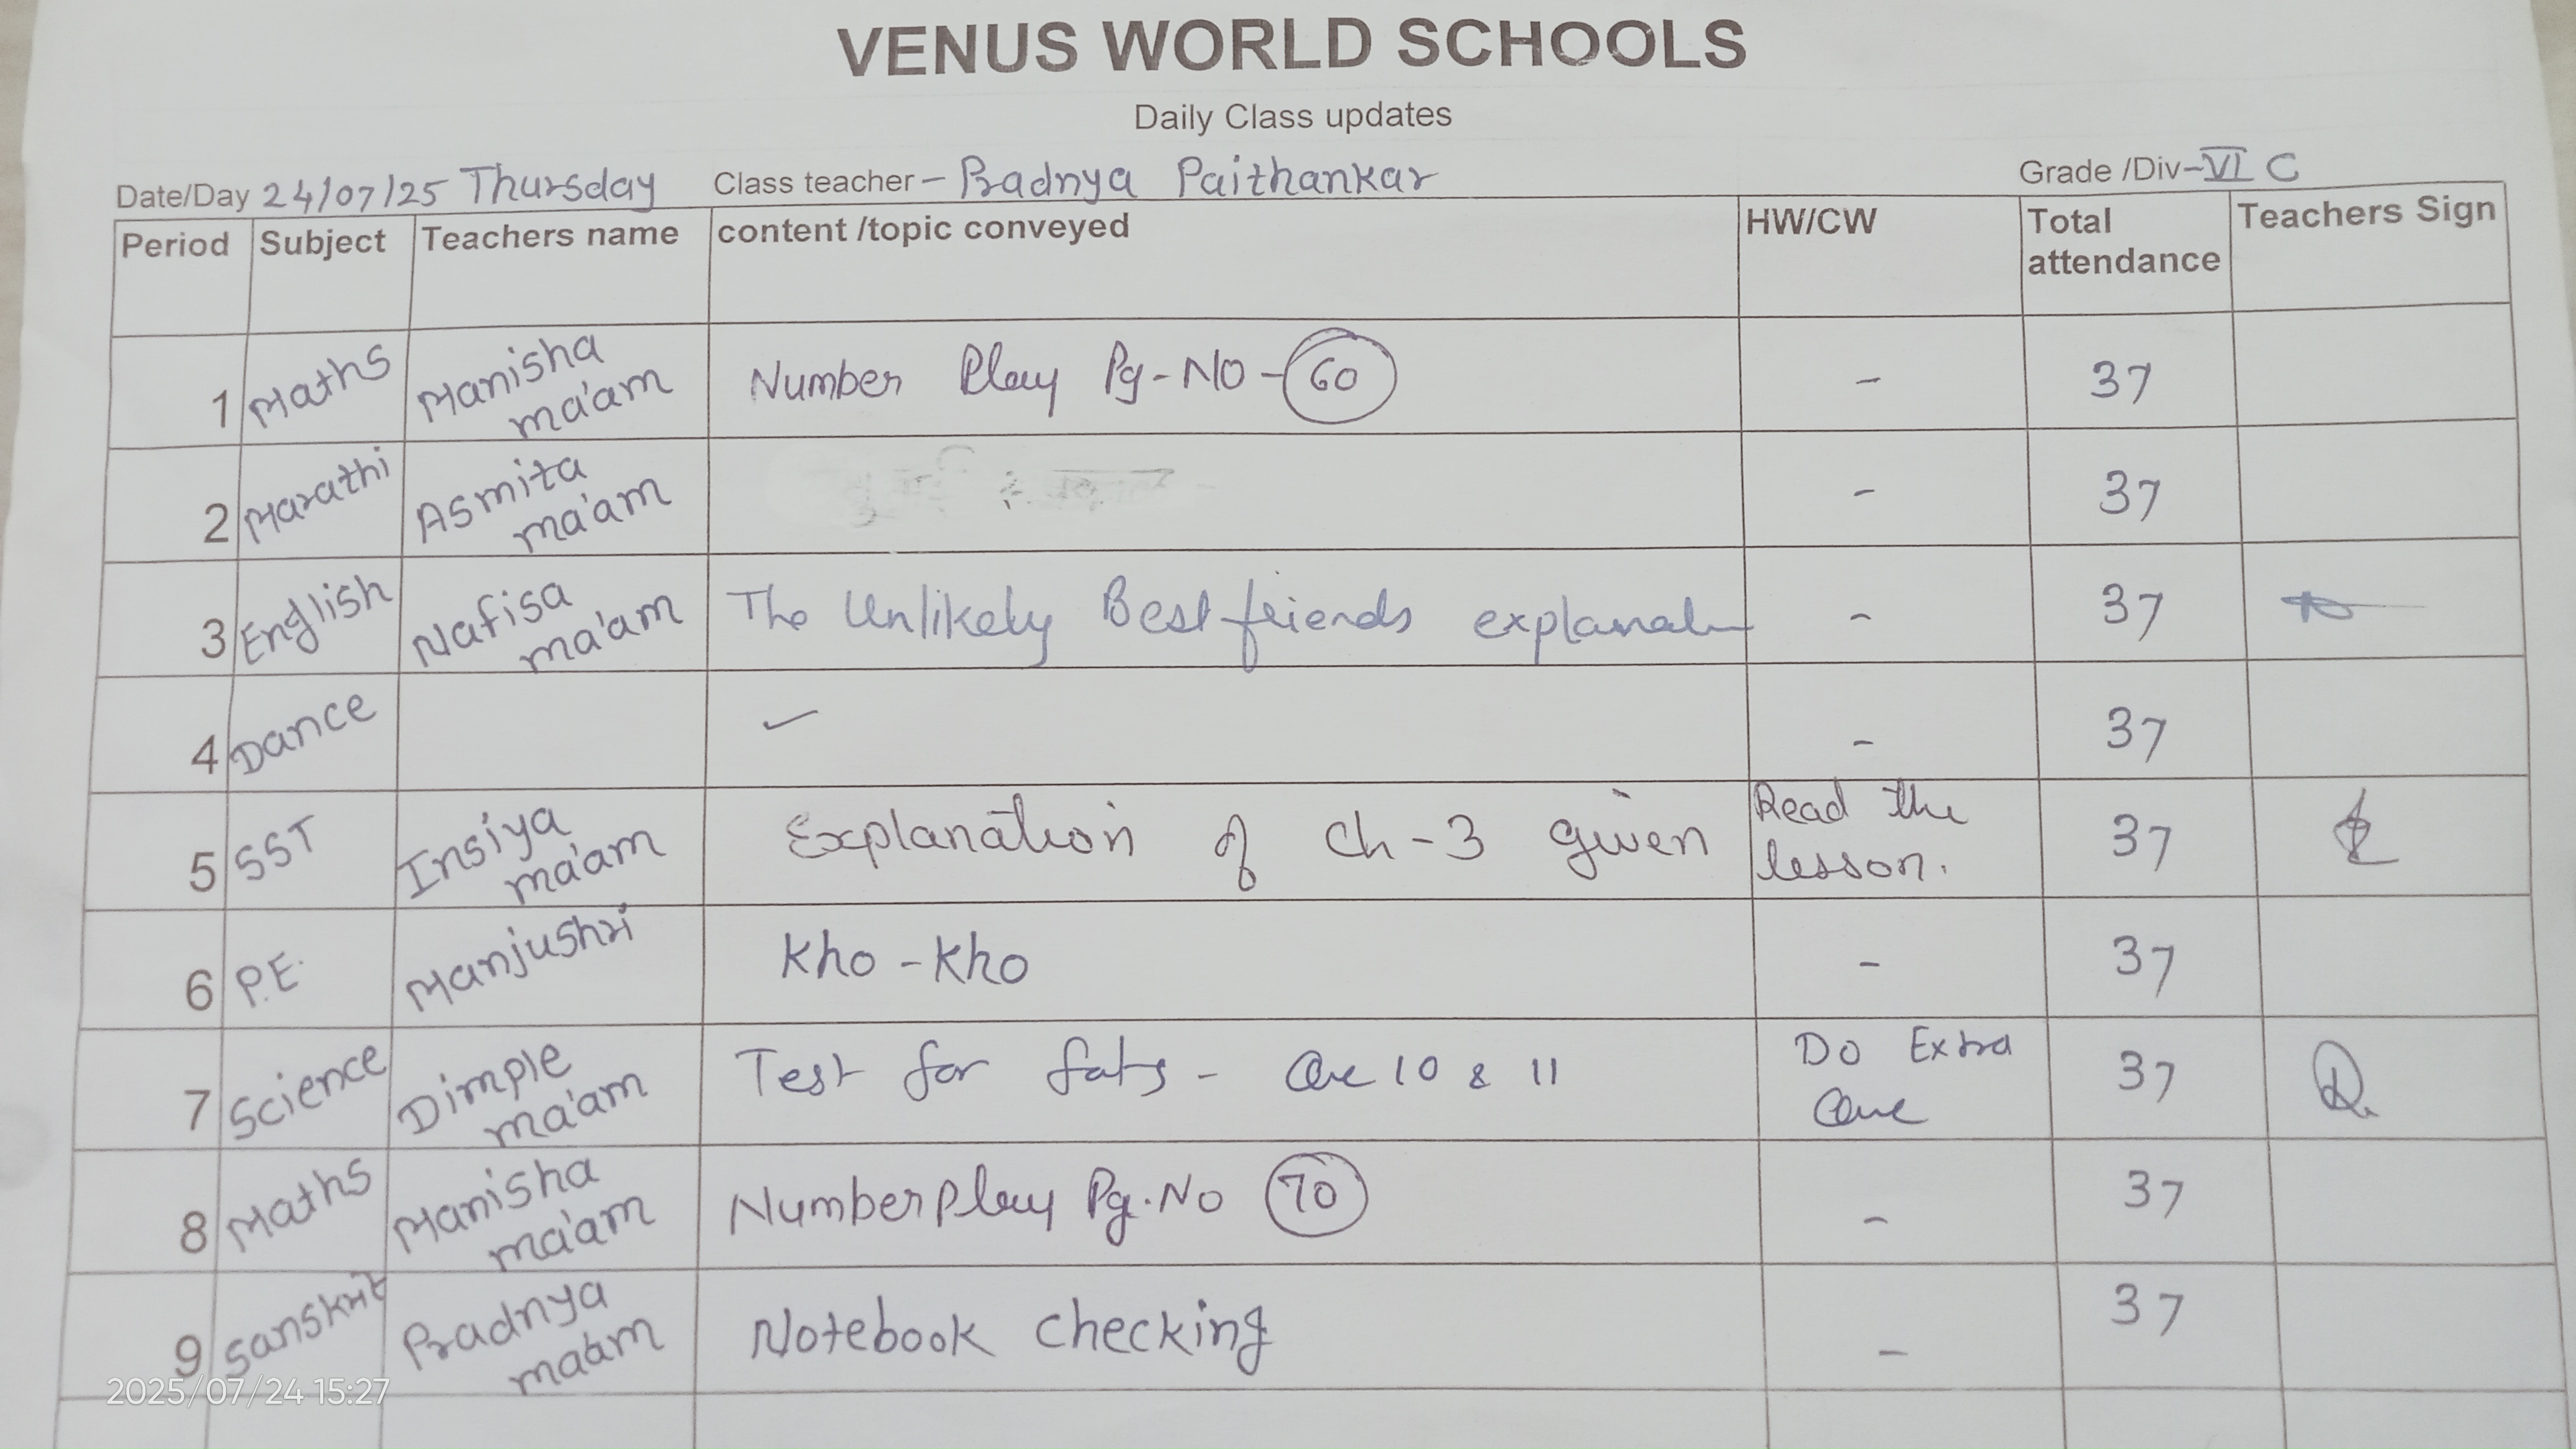 VENUS WORLD SCHOOLS
Daily Class updates
Date/Day 24/07/25 Thursday Class teacher - Pradnya Paithankar Grade /Div- VI C
Period Subject Teachers name content /topic conveyed HW/CW Total attendance Teachers Sign
1 Maths Manisha ma'am Number Play Pg-No- 60 - 37
2 Marathi Asmita ma'am - 37
3 English Nafisa ma'am The Unlikely Best friends - 37
4 Dance - 37
5 SST Insiya ma'am Explanation of Ch-3 given Read the lesson. 37
6 P.E. Manjushri Kho-Kho - 37
7 Science Dimple ma'am Test for fats - 10 & 11 Do Extra 37
8 Maths Manisha ma'am Number Play Pg.No 70 - 37
9 Sanskrit Pradnya ma'am Notebook checking - 37
2025/07/24 15:27